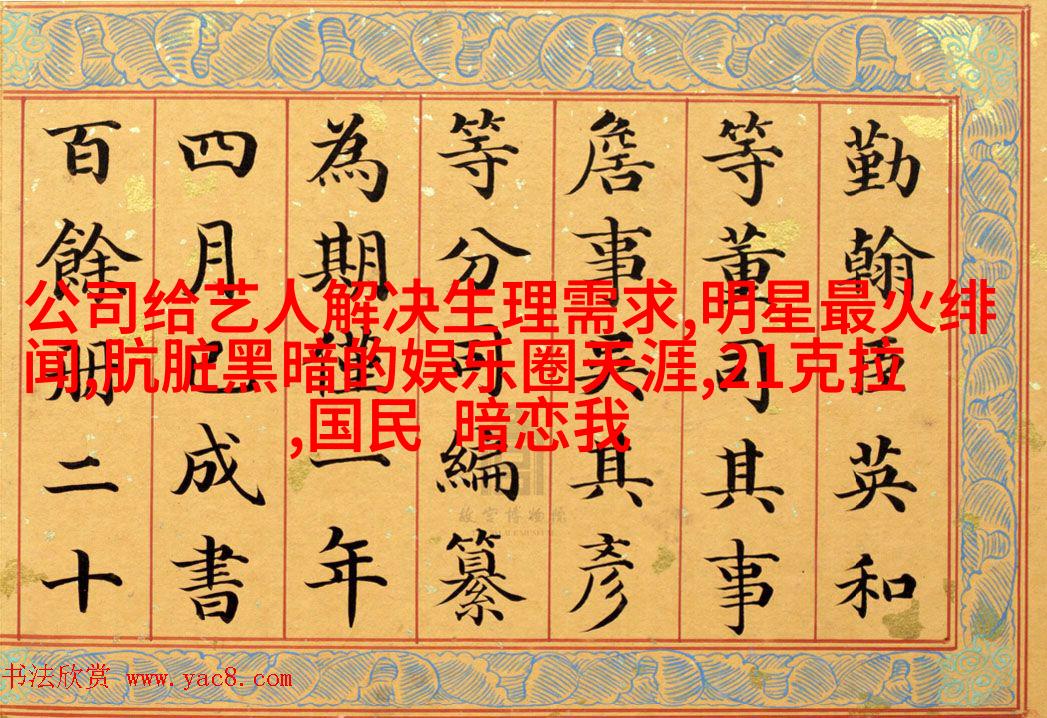 勤翰臣英和
等董司其事
詹事吳其彥
等分司編纂
為期僅一年
四月已成書
百餘冊二十
公司给艺人解决生理需求,明星最火绯
闻,肮脏黑暗的娱乐圈天涯,21克拉
,国民 暗恋我
故宫博物院
书法欣赏 www.yac8.com